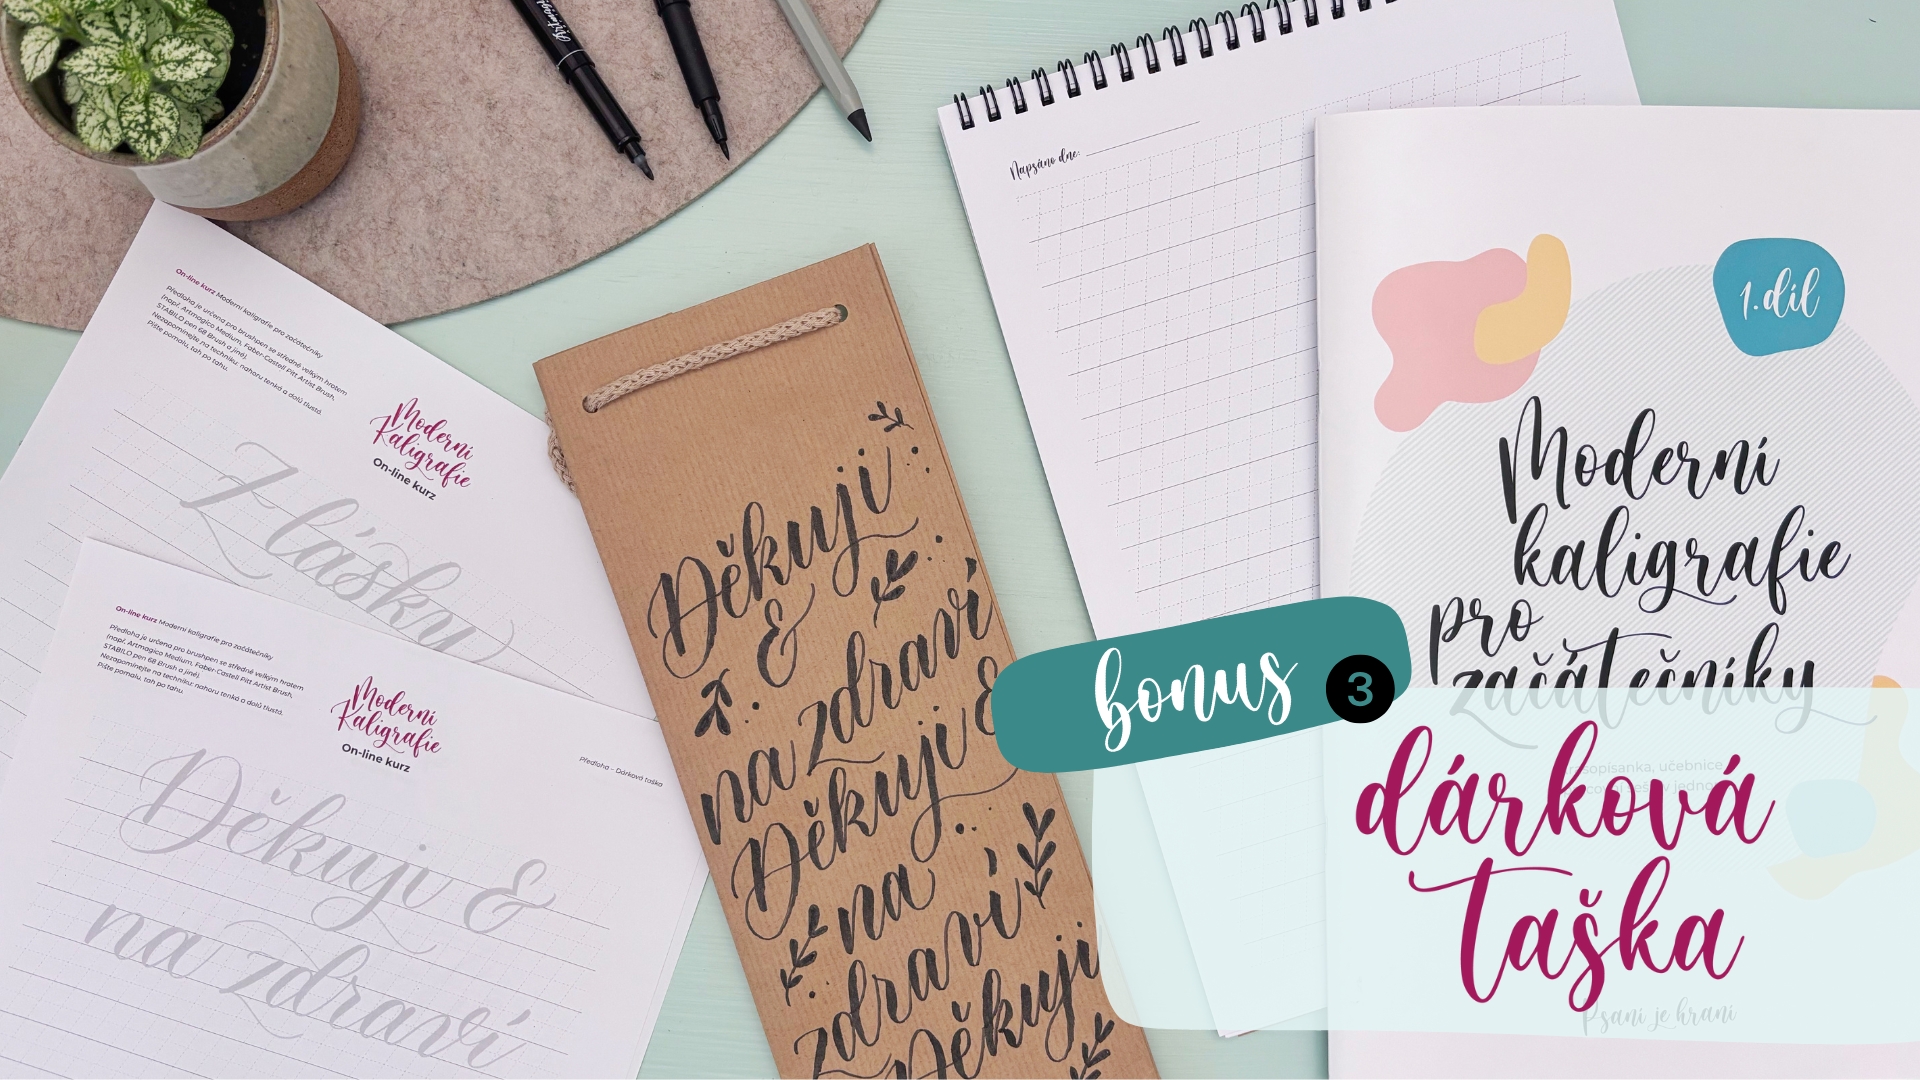 On-line kurz Moderní kaligrafie pro začátečníky
Předloha je určena pro brushpen se středně velkým hrotem
(např. Artmagico Medium, Faber-Castell Pitt Artist Brush,
STABILO pen 68 Brush a jiné).
Nezapomínejte na techniku: nahoru tenká a dolů tlustá.
Pište pomalu, tah po tahu.
Moderní
Kaligrafie
On-line kurz
Z lásky
On-line kurz Moderní kaligrafie pro začátečníky
Předloha je určena pro brushpen se středně velkým hrotem
(např. Artmagico Medium, Faber-Castell Pitt Artist Brush,
STABILO pen 68 Brush a jiné).
Nezapomínejte na techniku: nahoru tenká a dolů tlustá.
Pište pomalu, tah po tahu.
Moderní
Kaligrafie
On-line kurz
Předloha - Dárková taška
Děkuji &
na zdraví
Děkuji
&
na zdraví
Děkuji &
na
zdraví
Děkuji
Napsáno dne:
1. díl
Moderní
kaligrafie
pro
začátečníky
bonus 3
dárková
taška
Psaní je hraní